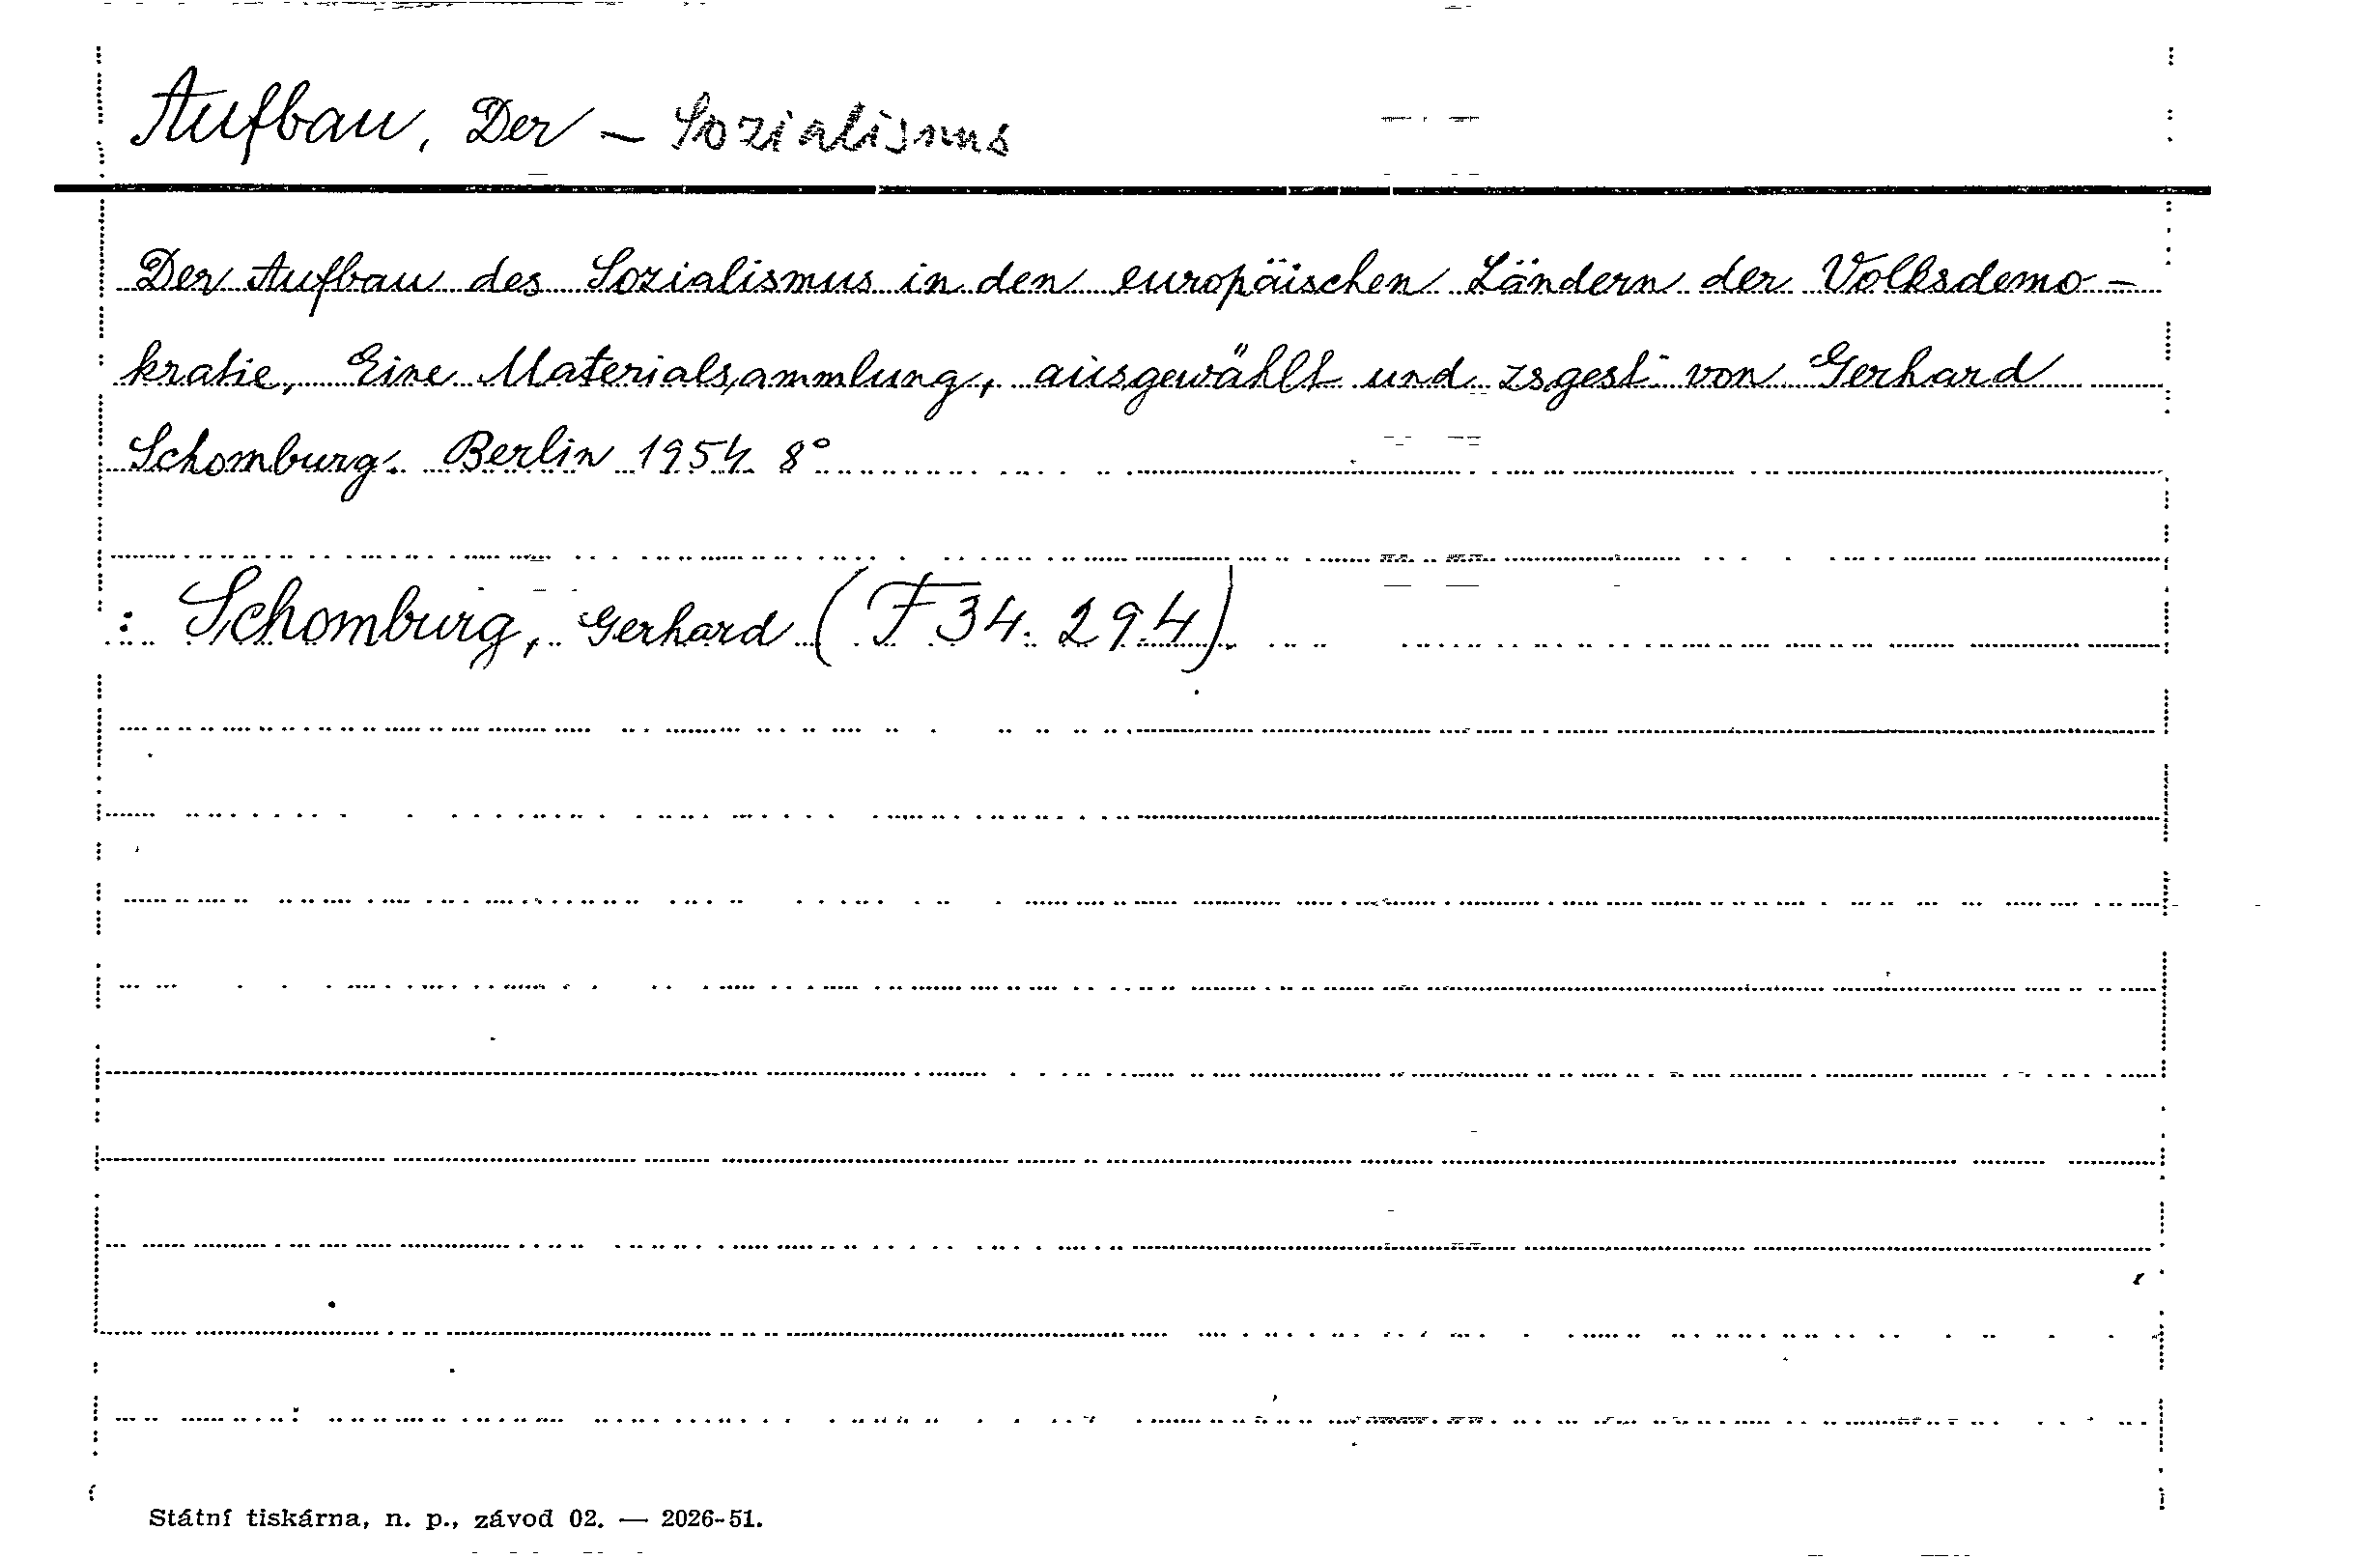 Aufbau, Der — Sozialismus
Der Aufbau des Sozialismus in den europäischen Ländern der Volksdemo-
kratie, Eine Materialsammlung, ausgewählt und zsgest von Gerhard
Schomburg. Berlin 1954 8°
: Schomburg, Gerhard (F 34.294)
Státní tiskárna, n. p., závod 02. — 2026-51.